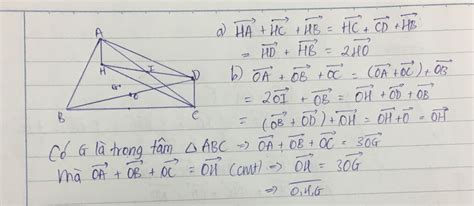 a) $\overrightarrow{HA} + \overrightarrow{HC} + \overrightarrow{HB} = \overrightarrow{HC} + \overrightarrow{CD} + \overrightarrow{HB}$
$= \overrightarrow{HD} + \overrightarrow{HB} = 2\overrightarrow{HO}$
b) $\overrightarrow{OA} + \overrightarrow{OB} + \overrightarrow{OC} = (\overrightarrow{OA} + \overrightarrow{OC}) + \overrightarrow{OB}$
$= 2\overrightarrow{OI} + \overrightarrow{OB} = \overrightarrow{OH} + \overrightarrow{OD} + \overrightarrow{OB}$
$= (\overrightarrow{OB} + \overrightarrow{OD}) + \overrightarrow{OH} = \overrightarrow{OH} + \overrightarrow{O} = \overrightarrow{OH}$
Có G là trong tâm △ABC => $\overrightarrow{OA} + \overrightarrow{OB} + \overrightarrow{OC} = 3\overrightarrow{OG}$
mà $\overrightarrow{OA} + \overrightarrow{OB} + \overrightarrow{OC} = \overrightarrow{OH}$ (cmt) => $\overrightarrow{OH} = 3\overrightarrow{OG}$
=> $\overline{O,H,G}$
A
H
I
D
G
O
B
C